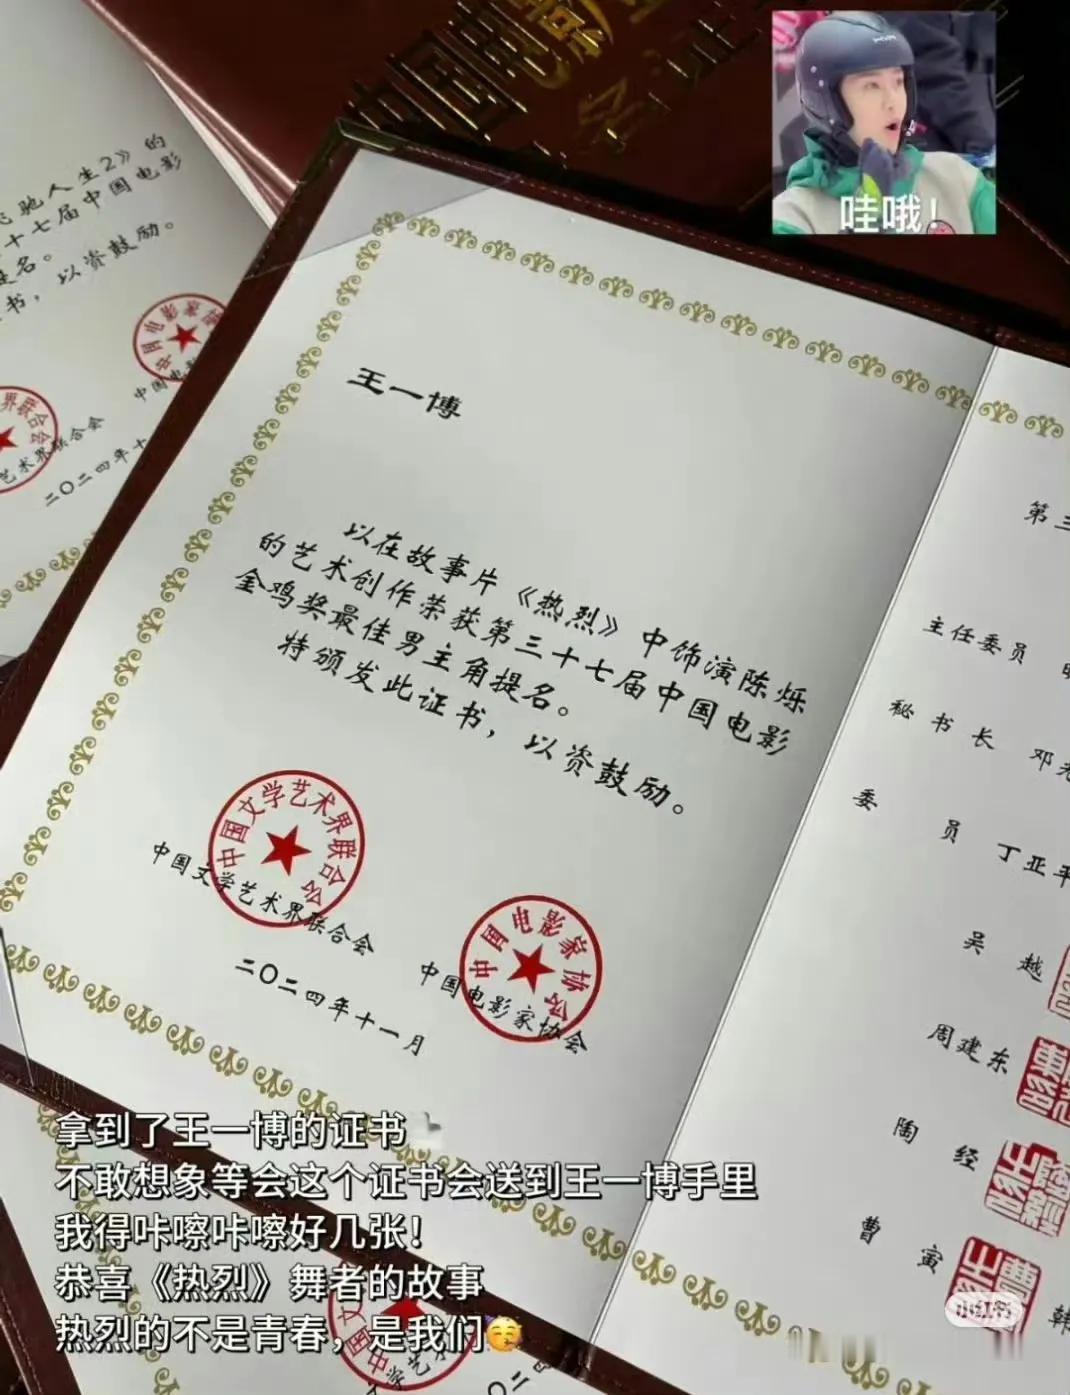 哇哦！
驰人生2》的
十七届中国电影
提名。
书，以资鼓励。
艺术界联合会
二〇二四年十
王一博
以在故事片《热烈》中饰演陈烁
的艺术创作荣获第三十七届中国电影
金鸡奖最佳男主角提名。
特颁发此证书，以资鼓励。
中国文学艺术界联合会
中国文学艺术界联合会
中国电影家协会
中国电影家协会
二〇二四年十一月
第三
主任委员
秘书长 邓光
委员 丁亚平
吴越
周建东
陶经
曹寅
韩
拿到了王一博的证书
不敢想象等会这个证书会送到王一博手里
我得咔嚓咔嚓好几张！
恭喜《热烈》舞者的故事
热烈的不是青春，是我们🥳
小红书